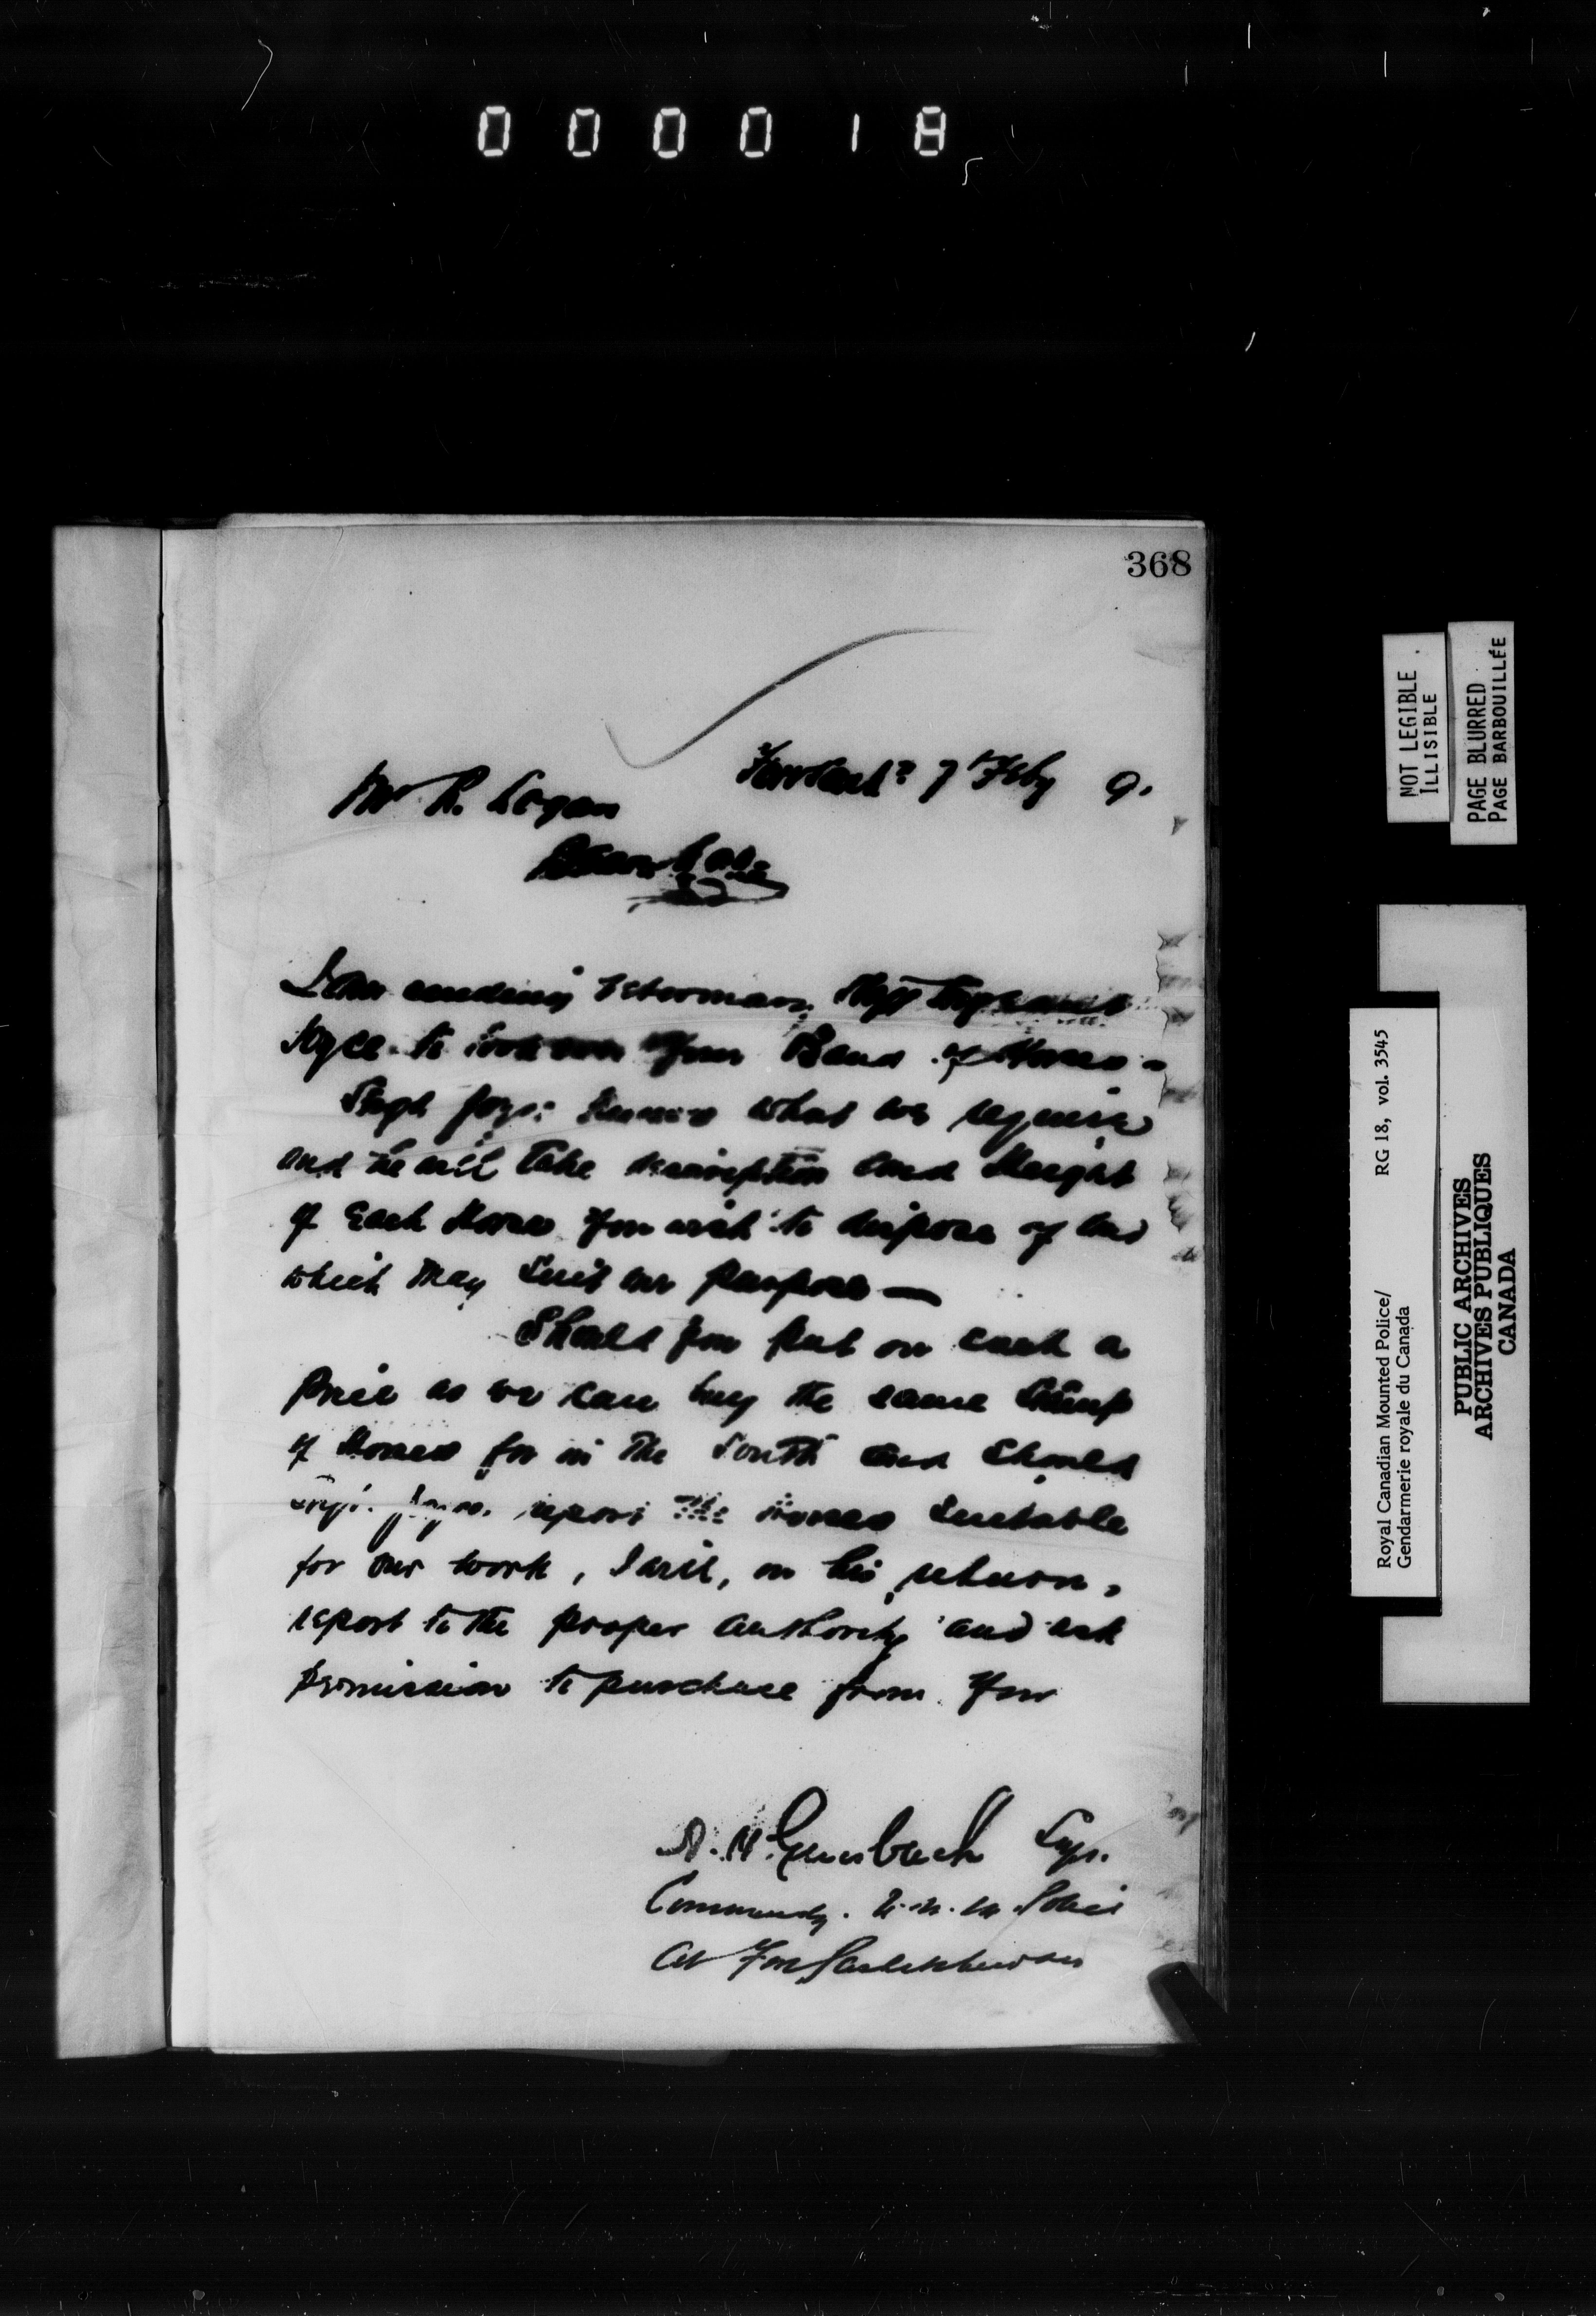 000018
368
Fort Sask? 7 Feby 9.
Mr R. Logan
I am sending Veterinary Staff Sergeant
to look over your Band of Horses -
Sergt knows what we require
and he will take description and Height
of Each Horse you wish to dispose of and
which may Suit our purpose —
Should you put on each a
Price as we can buy the same Stamp
of Horses for in the South and Should
report the Horses Suitable
for our work, I will, on his return,
report to the proper authority and ask
permission to purchase from you
A. H. Griesbach Supt.
Commandg. N. W. M Police
At Fort Saskatchewan
NOT LEGIBLE
ILLISIBLE
PAGE BLURRED
PAGE BARBOUILLÉE
Royal Canadian Mounted Police/ RG 18, vol. 3545
Gendarmerie royale du Canada
PUBLIC ARCHIVES
ARCHIVES PUBLIQUES
CANADA